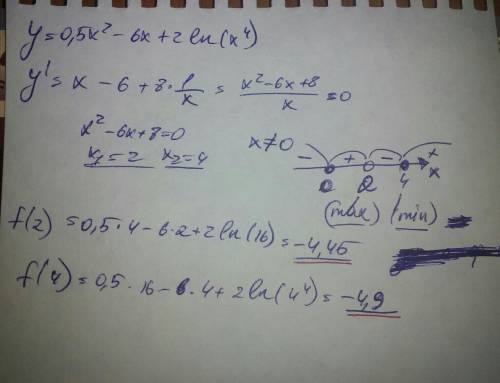 y = 0,5x² - 6x + 2 ln(x⁴)
y' = x - 6 + 8 · 1/x = (x² - 6x + 8)/x = 0
x² - 6x + 8 = 0
x₁ = 2 x₂ = 4
x ≠ 0
- + - +
0 2 4 x
(max) (min)
f(2) = 0,5 · 4 - 6 · 2 + 2 ln(16) = -4,45
f(4) = 0,5 · 16 - 6 · 4 + 2 ln(4⁴) = -4,9